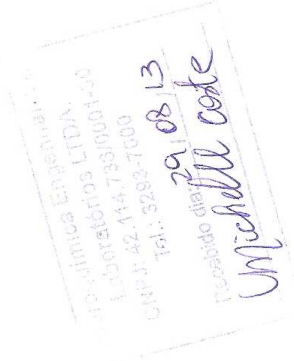 Química Engenharia
Laboratórios LTDA.
CNPJ: 42.114.735/0001-40
Tel.: 3293-7000
Recebido dia: 29/08/13
Michelle Coste